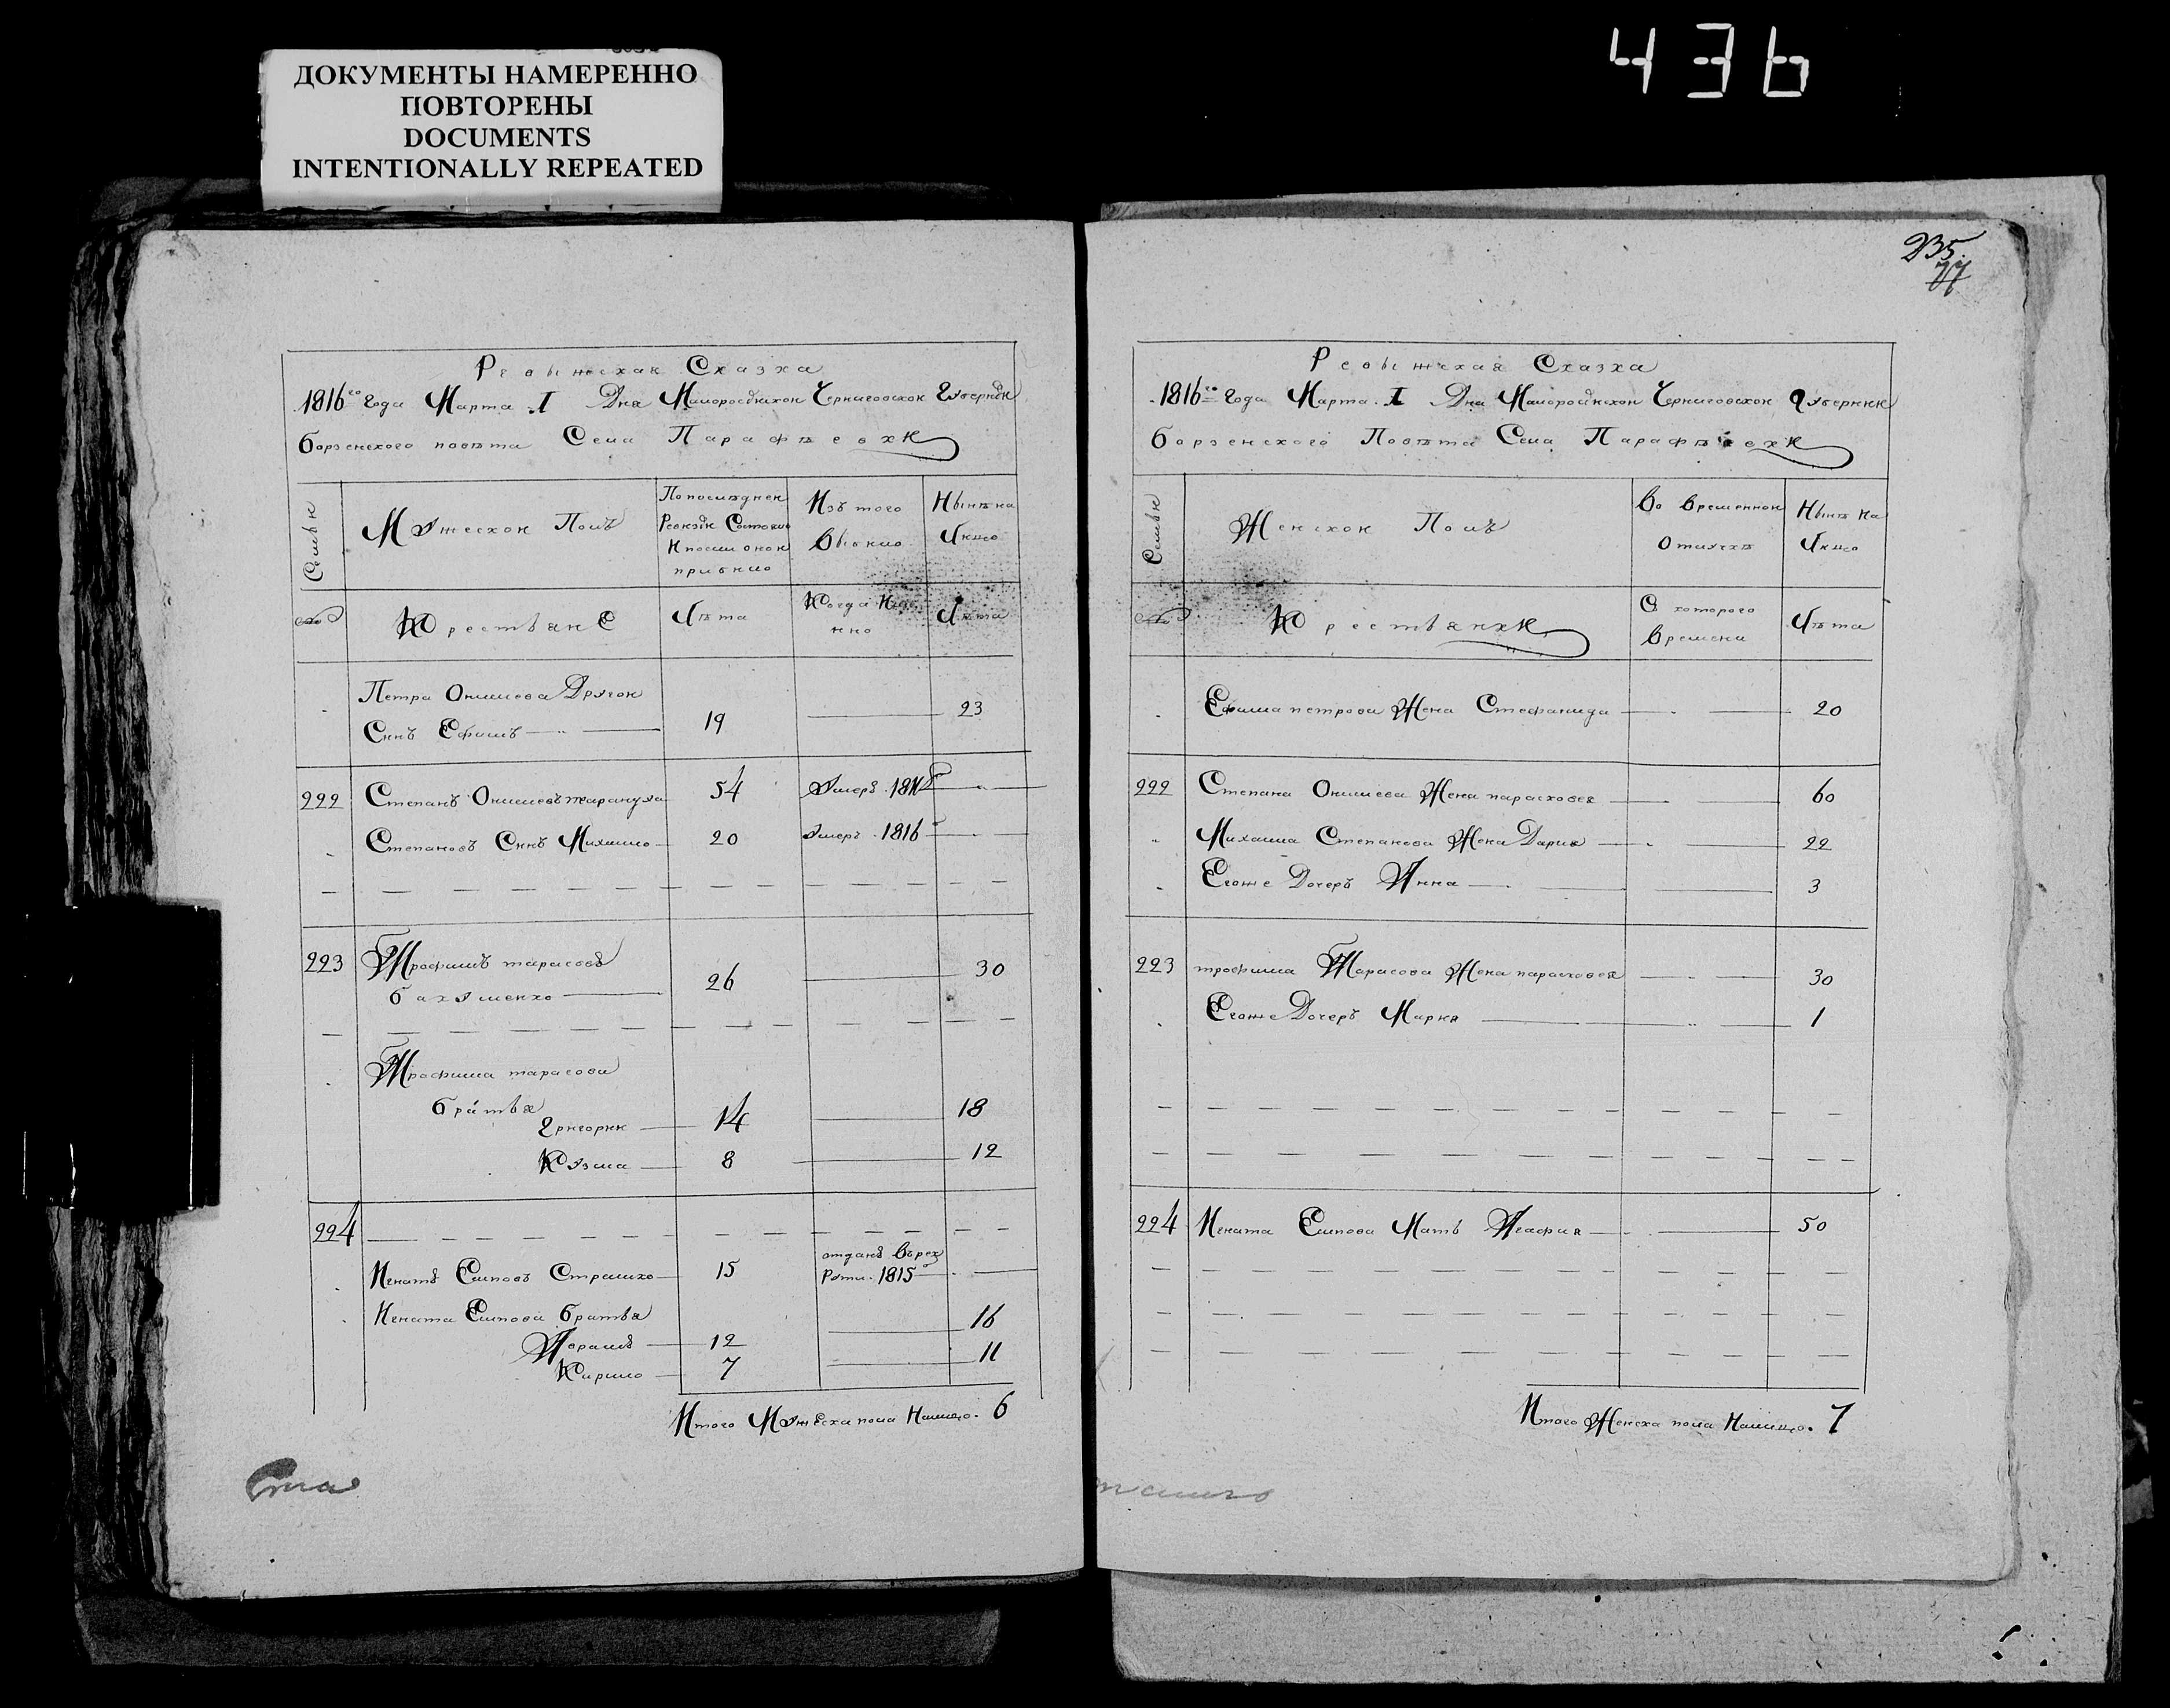 436
ДОКУМЕНТЫ НАМЕРЕННО
ПОВТОРЕНЫ
DOCUMENTS
INTENTIONALLY REPEATED
Ревыжская Сказка
1816го Года Марта I Дня Малороссійской Черниговской Губерніи
борзенского повѣта Села Парафѣевки
Семьи
Мужеской Полъ
По последней Ревизіи Состояло И после оной прибыло
Изъ того Выбыло
Нынѣ на Лицо
Крестьяне
Лѣта
Когда И
Лѣта
Петра Онишева Другой
Снъ Ефимъ 19 23
222 Степанъ Онишевъ 54 Умеръ 181
Степановъ Снъ Михаило 20 Умеръ 1816
223 Трофимъ тарасовъ
бахуменко 26 30
Трофима тарасова
братья
Григорий 14 18
Кузма 8 12
224
отданъ Въ рек
Игнатъ Еиповъ 15 Руты 1815
Игната Еипова братья 16
12
Кирило 7 11
Итого Мужеска пола Налицо 6
235
77
Ревыжская Сказка
1816го Года Марта I Дня Малороссійской Черниговской Губерніи
борзенского Повѣта Села Парафѣевки
Семьи
Женской Полъ
Во Временной Отлучкѣ
Нынѣ На Лицо
Крестьянки
С которого Времени
Лѣта
Ефима петрова Жена Стефанида 20
222 Степана Онишева Жена парасковея 60
Михаила Степанова Жена Дария 22
Егоже Дочеръ Анна 3
223 трофима Тарасова Жена парасковея 30
Егоже Дочеръ Мария 1
224 Игната Еипова Мать Агафия 50
Итого Женска пола Налицо 7